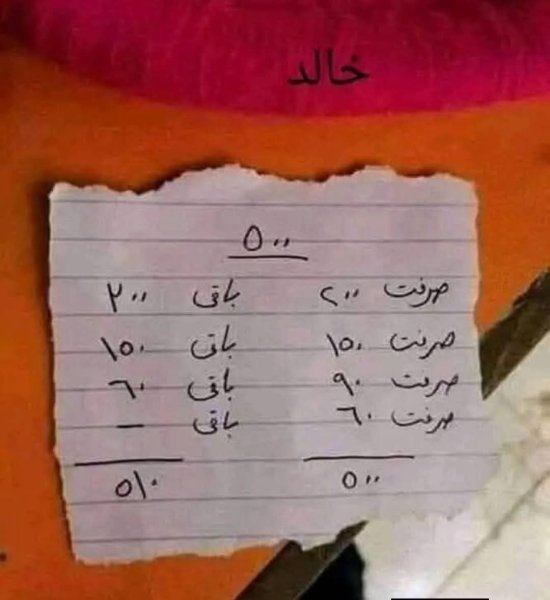 خالد
٥٠٠
صرفت ٢٠٠ باقى ٣٠٠
صرفت ١٥٠ باقى ١٥٠
صرفت ٩٠ باقى ٦٠
صرفت ٦٠ باقى —
٥٠٠ ٥١٠